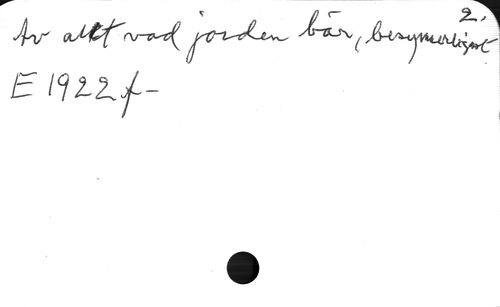 2.
Av allt vad jorden bär, besynnerligast
E 1922 f-